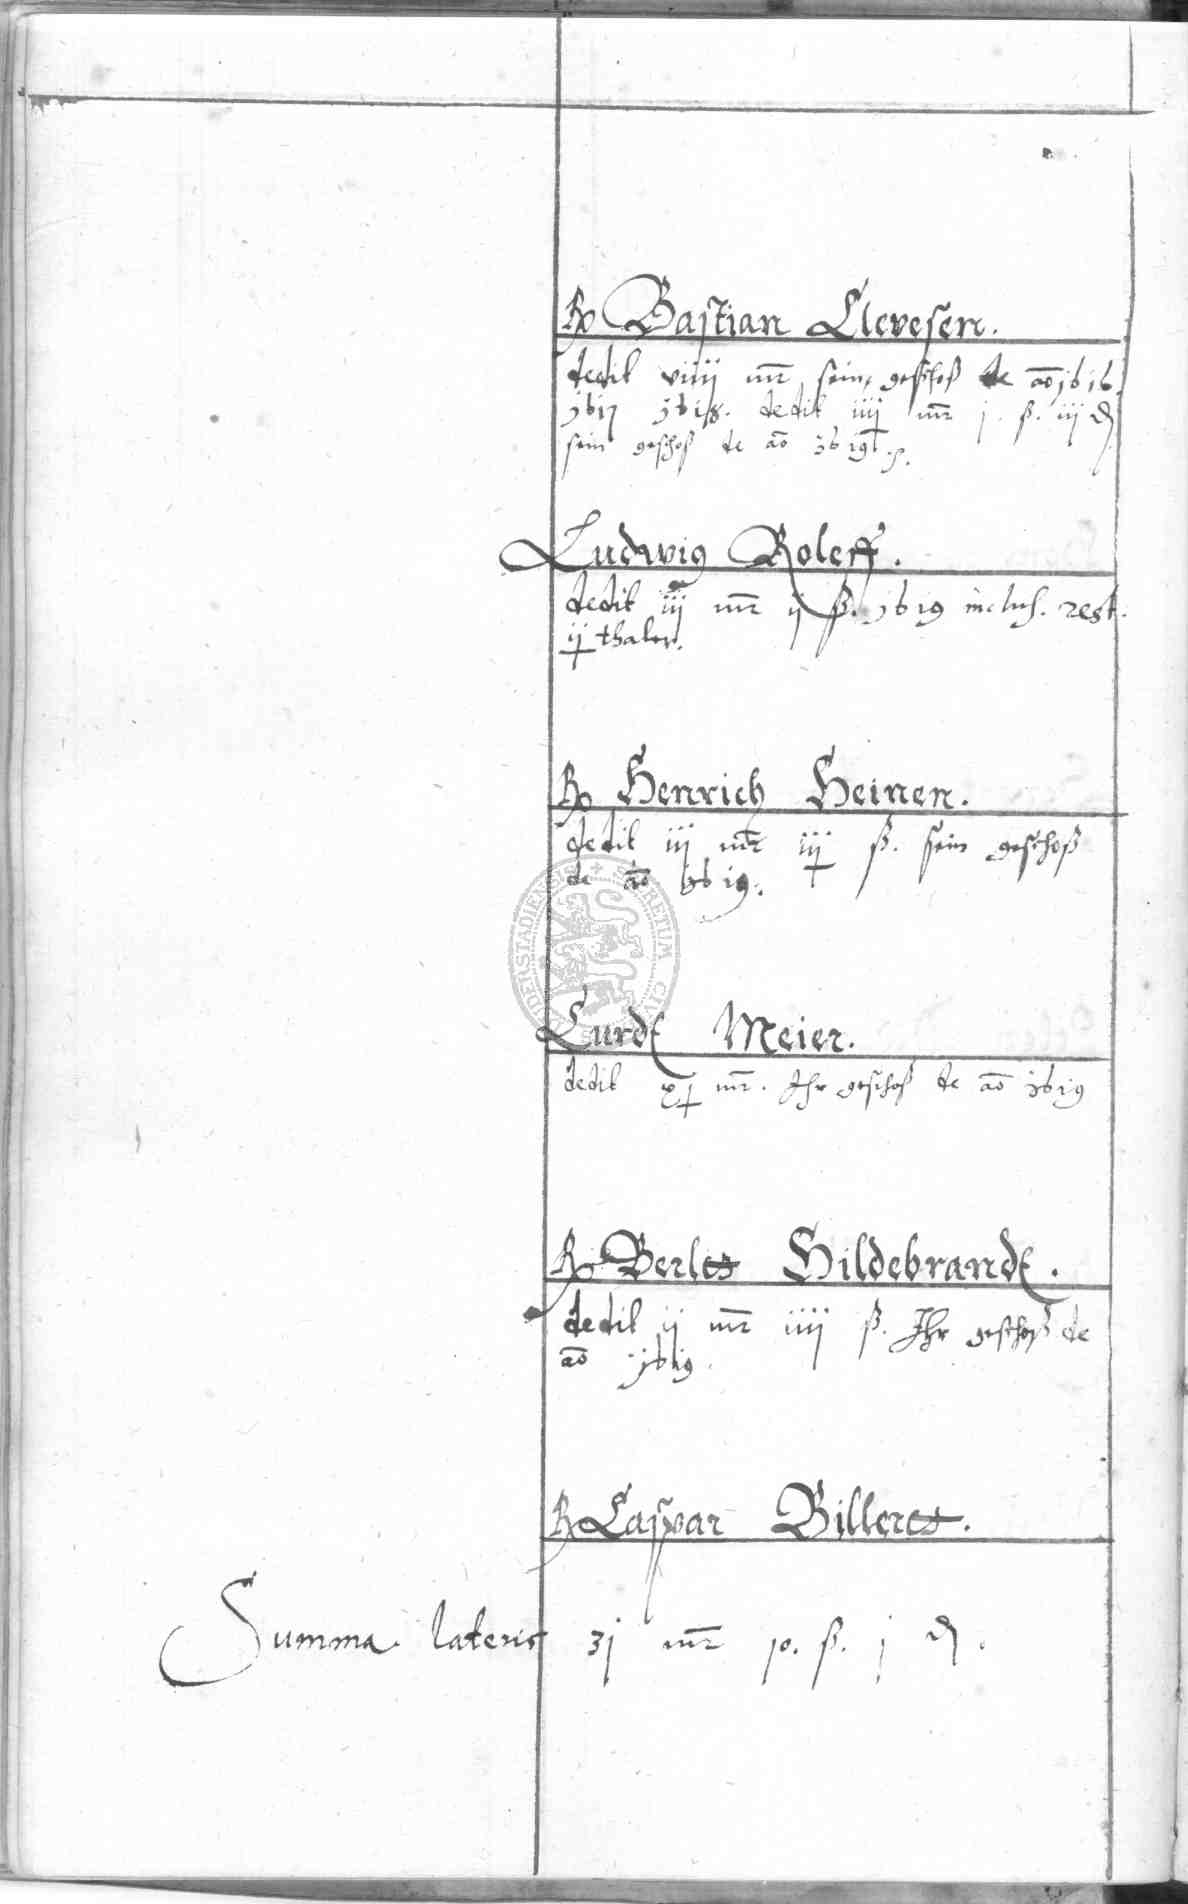 Rp Bastian Clevesen.
dedit viiij mr sein geschoß de ao 1616
1617 1618. dedit iiij mr j. ß. iij d
sein geschoß de ao 1619
Ludwig Roleff.
dedit iij mr ij ß. 1619 inclus. rest.
ij thaler.
Rp Henrich Heinen.
dedit iij mr iij ß. sein geschoß
de ao 1619.
Curdt Meier.
dedit xj mr. Ihr geschoß de ao 1619
Rp Berltt Hildebrandt.
dedit ij mr iiij ß. Ihr geschoß de
ao 1619.
Rp Caspar Billertt.
Summa lateris 31 mr 10. ß. j d.
DUDERSTADIENSIS + SECRETUM CIVI